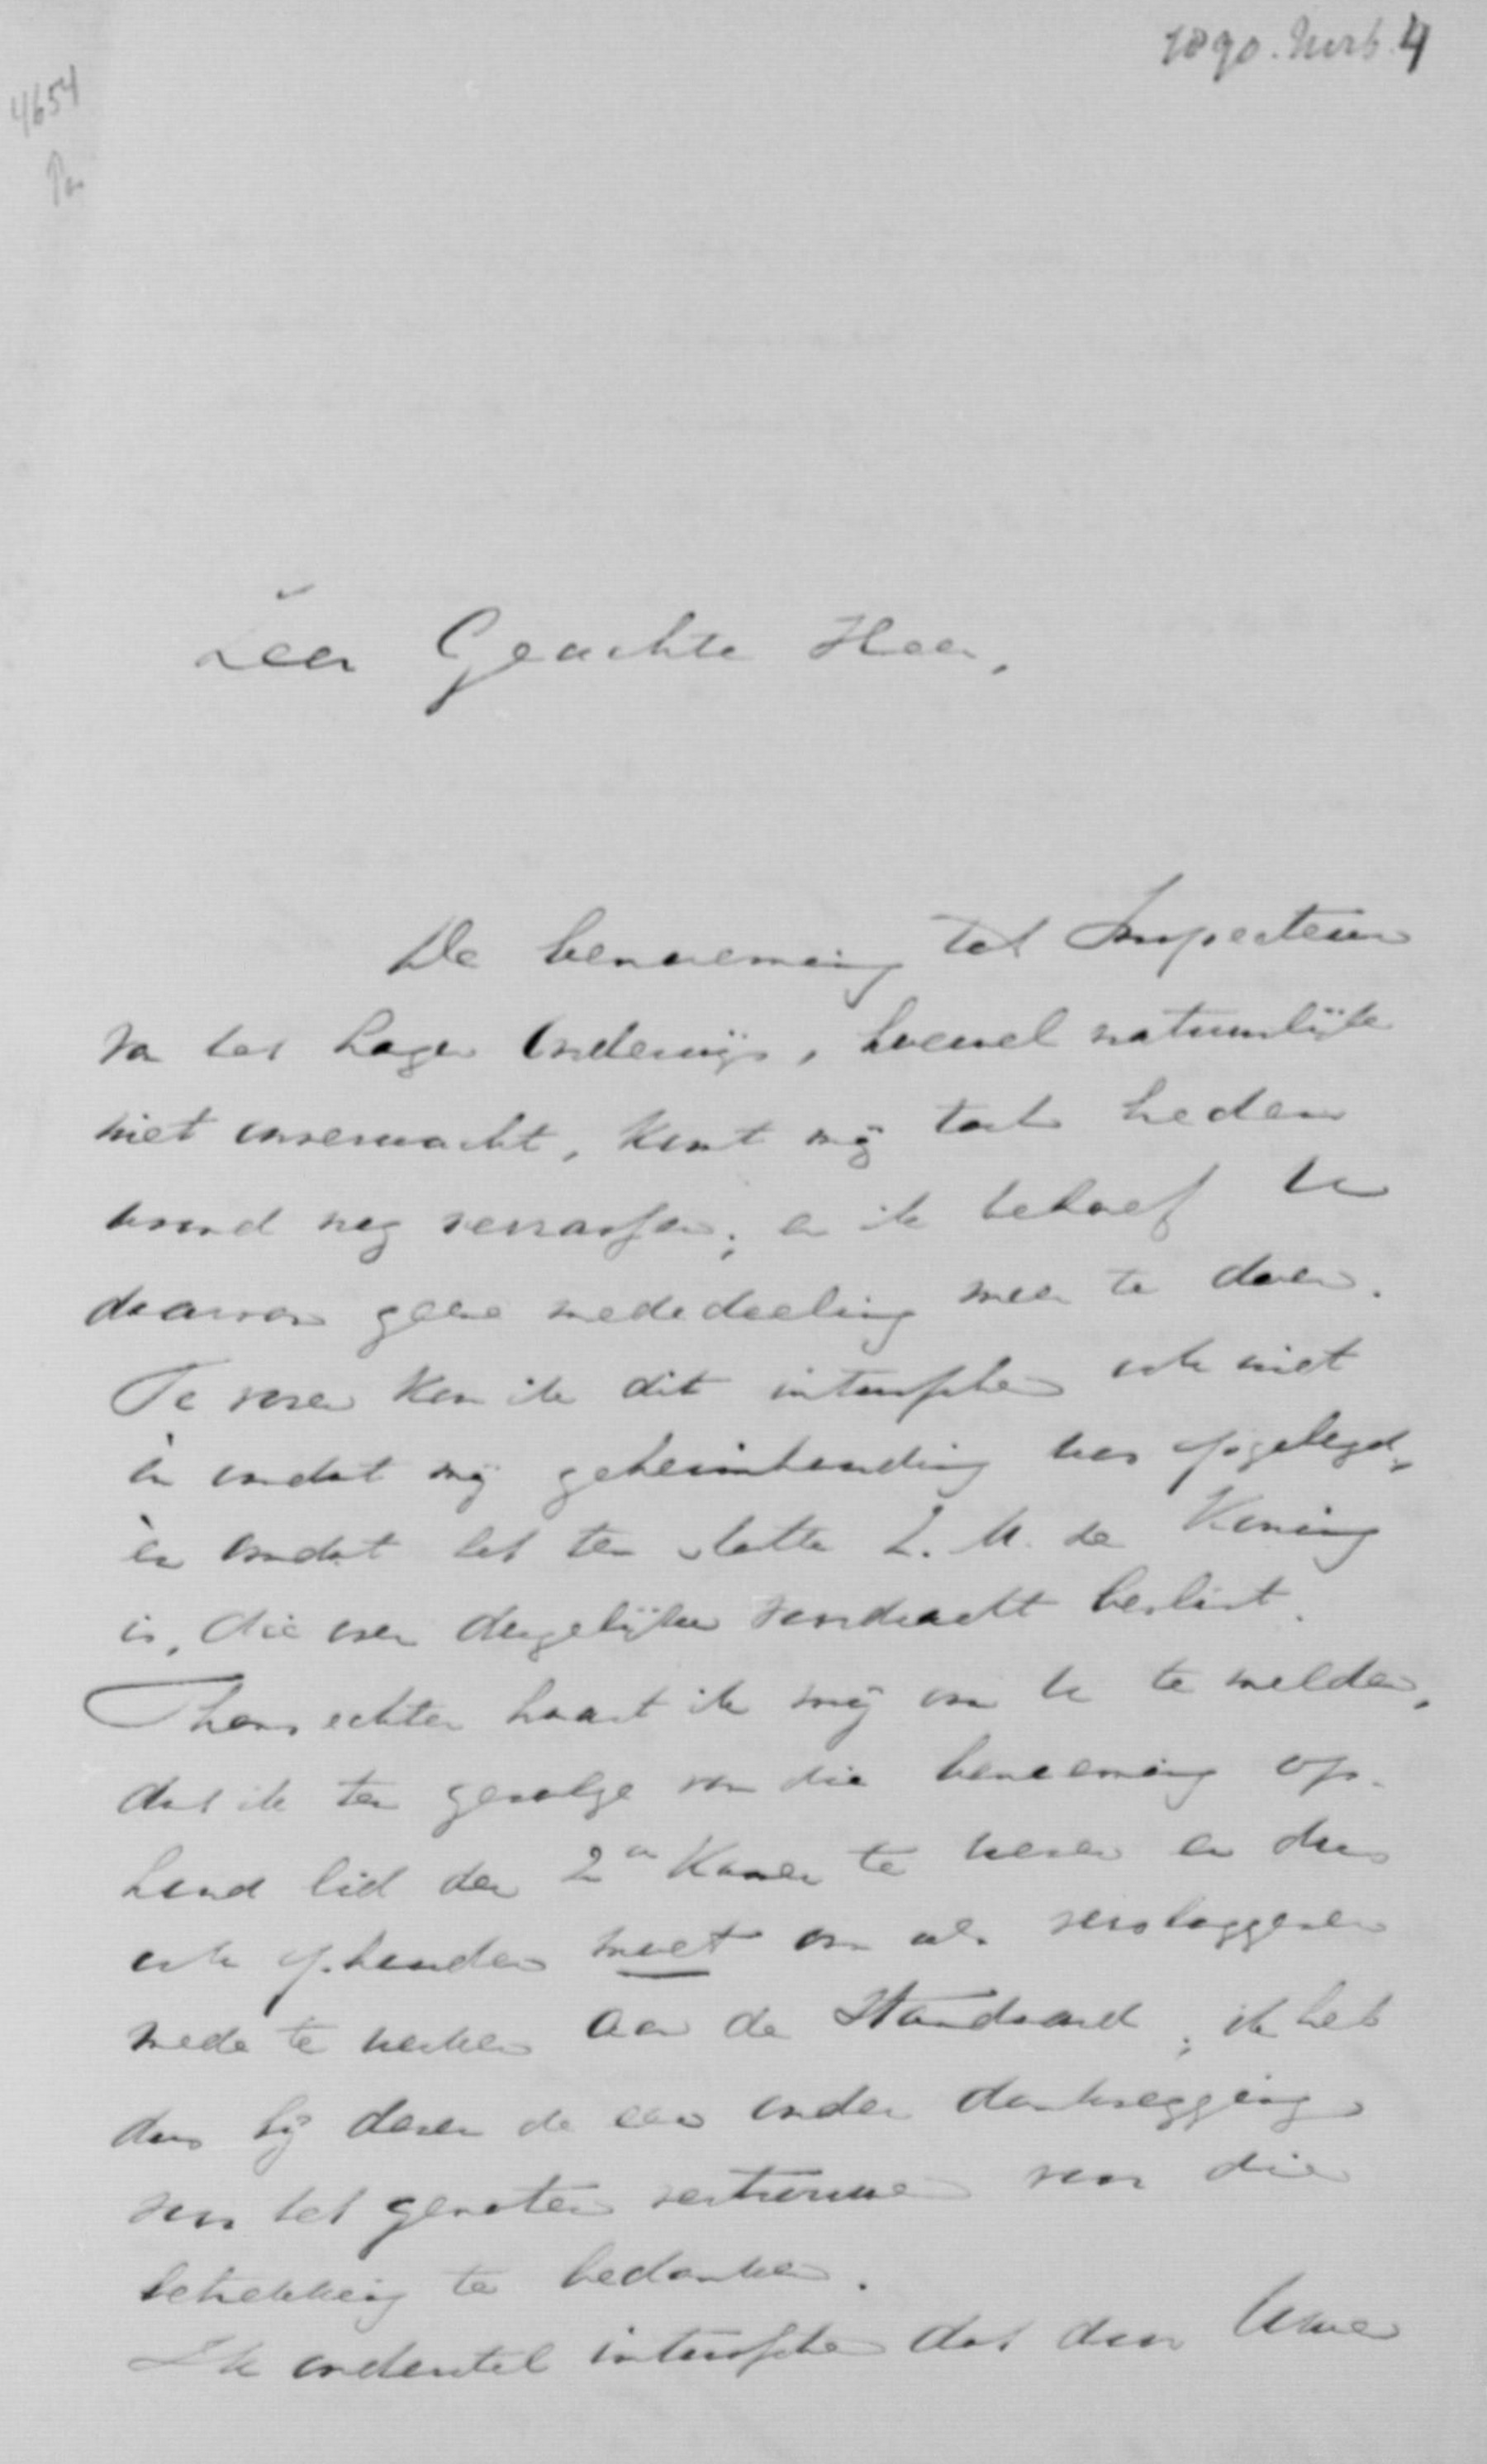 1890. Norb. 4
4654
Zeer Geachte Heer,
De benoeming tot Inspecteur
van het Lager Onderwijs, hoewel natuurlijk
niet onverwacht, komt mij toch heden
avond nog verrassen; en ik behoef U
daarvan geene mededeeling meer te doen.
Te voren kon ik dit intusschen ook niet
èn omdat mij geheimhouding was opgelegd,
èn omdat het ten slotte Z. M. de Koning
is, die over dergelijke voordracht beslist.
Thans echter haast ik mij om U te melden,
dat ik ten gevolge van die benoeming op-
houd lid der 2e Kamer te wezen en dus
ook ophouden moet om als verslaggever
mede te werken aan de Standaard; ik heb
dus bij dezen de eer onder dankzegging
voor het genoten vertrouwen voor die
betrekking te bedanken.
Ik onderstel intusschen dat door Uwe